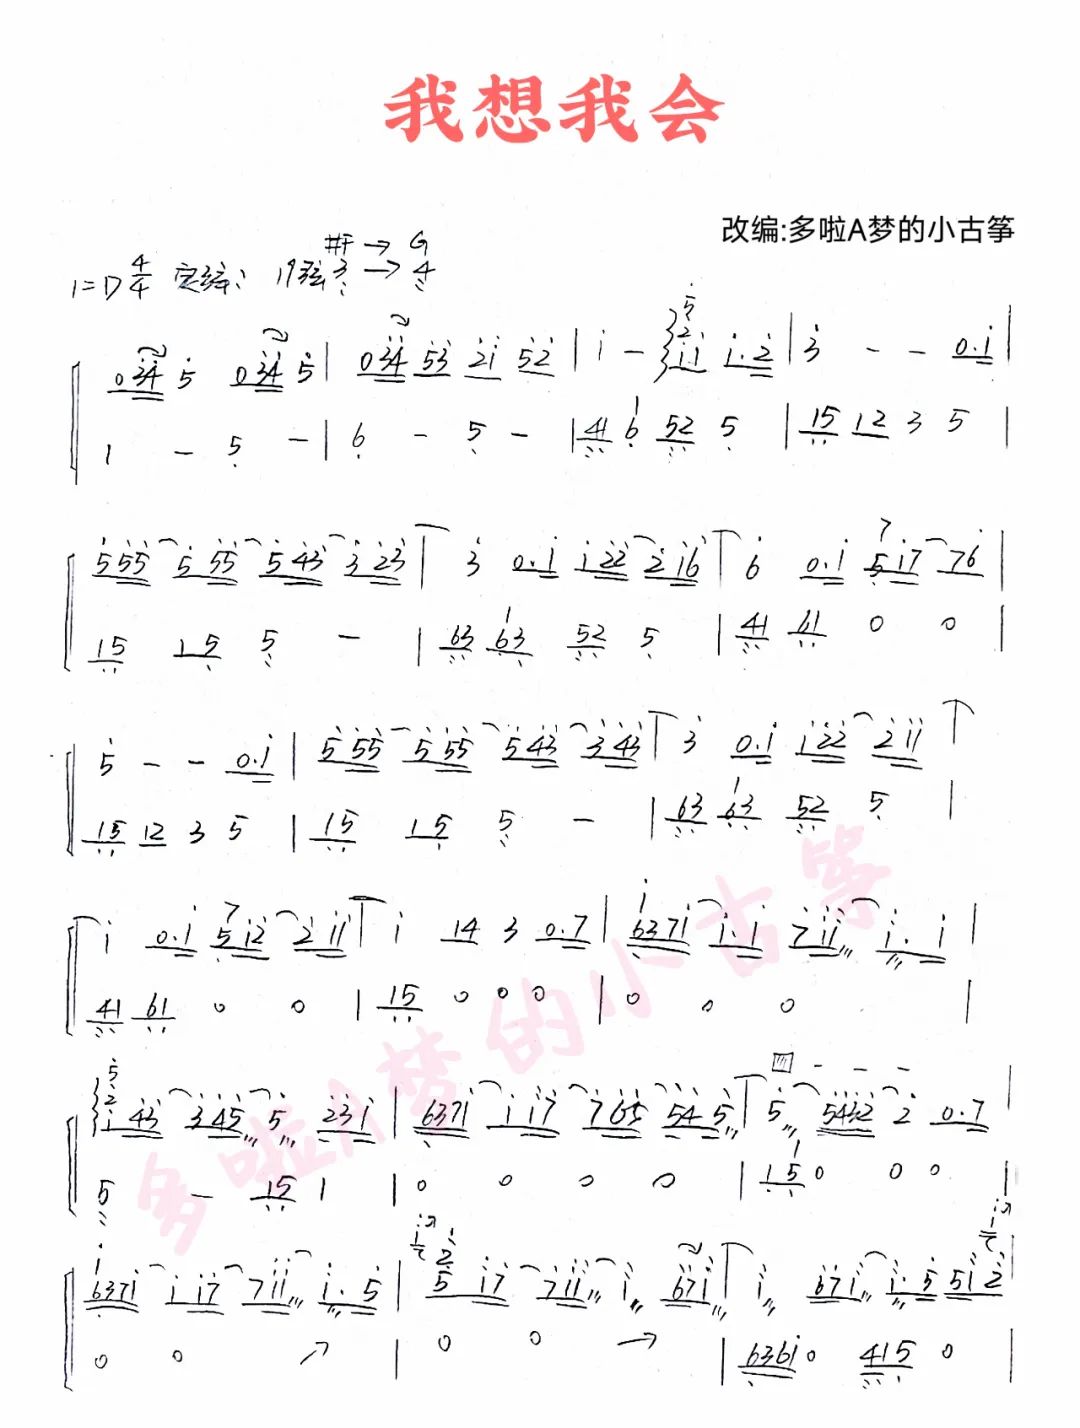 我想我会
改编:多啦A梦的小古筝
#F → G
1=D 4/4 定弦: 19弦 3 → 4
5
2
0 3 4 5 0 3 4 5 | 0 3 4 5 3 2 1 5 2 | 1 – 1 . 1 1 . 2 | 3 – – 0 . 1 |
1 – 5 – | 6 – 5 – | 4 1 6 5 2 5 | 1 5 1 2 3 5 |
5 5 5 5 5 5 5 4 3 3 2 3 | 3 0 . 1 1 2 2 2 1 6 | 6 0 . 1 5 1 7 7 6 |
1 5 1 5 5 – | 6 3 6 3 5 2 5 | 4 1 6 1 0 0 |
5 – – 0 . 1 | 5 5 5 5 5 5 5 4 3 3 4 3 | 3 0 . 1 1 2 2 2 1 1 |
1 5 1 2 3 5 | 1 5 1 5 5 – | 6 3 6 3 5 2 5 |
1 0 . 1 5 1 2 2 1 1 | 1 1 4 3 0 . 7 | 6 3 7 1 1 . 1 7 1 1 1 . 1 |
4 1 6 1 0 0 | 1 5 0 0 0 | 0 0 0 |
5
2
1 4 3 3 4 5 5 2 3 1 | 6 3 7 1 1 1 7 7 6 5 5 4 5 | 5 5 4 3 2 2 0 . 7 |
5 – 1 5 1 | 0 0 0 0 | 1 5 0 0 0 |
6 3 7 1 1 1 7 7 1 1 1 . 5 | 5 1 7 7 1 1 1 6 7 1 | 1 6 7 1 1 . 5 5 1 2 |
0 0 ↗ | 0 0 → | 6 3 6 1 0 4 1 5 0 |
多啦A梦的小古筝